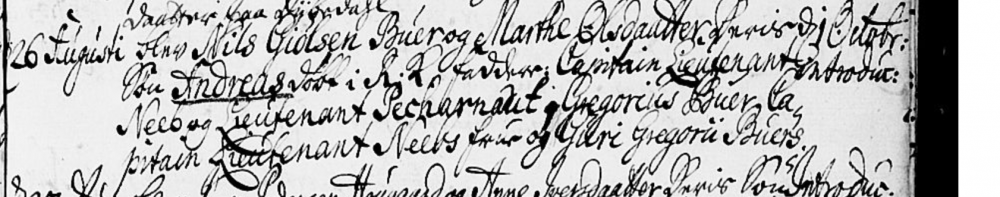 Daatter paa
26 Augusti blev Nils Giolsen Buer og Marthe Olsdaatter Deris d 1 Octobr:
Søn Andreas døbt i R. K. faddere: Capitain Lieutenant introduc:
Neeb og Lieutenant Pecharnaut, Gregorius Buer, Ca-
pitain Lieutenant Neebs frue og Guri Gregorii Buers.
og Anne Iversdaatter Deris Søn Introduc: